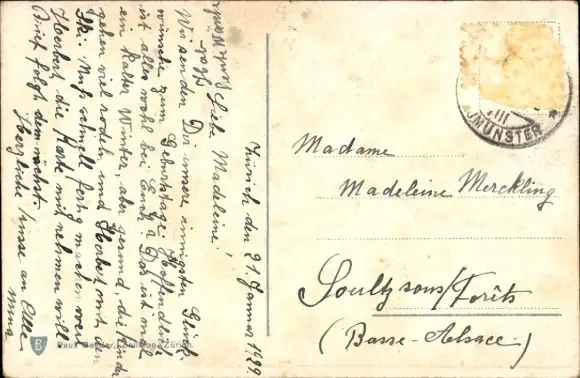 Zürich den 21. Januar 1929
Liebe Madeleine!
Wir senden Dir unsere innigsten Glück
wünsche zum Geburtstage. Hoffendlich
ist alles wohl bei Euch. Ja Das ist mal
ein kalter Winter, aber gesund, die Kinder
gehen viel rodeln, und Herbert mit den
Ski. Muß schnell fertig machen weil
Herbert die Karte mit nehmen will
Brief folgt demnächst.
Herzliche Grüsse an Alle
Mina
MÜNSTER
VIII
Madame
Madeleine Merckling
Soultz sous/Forêts
(Basse-Alsace)
B
Paul Bender, Zollikon-Zürich